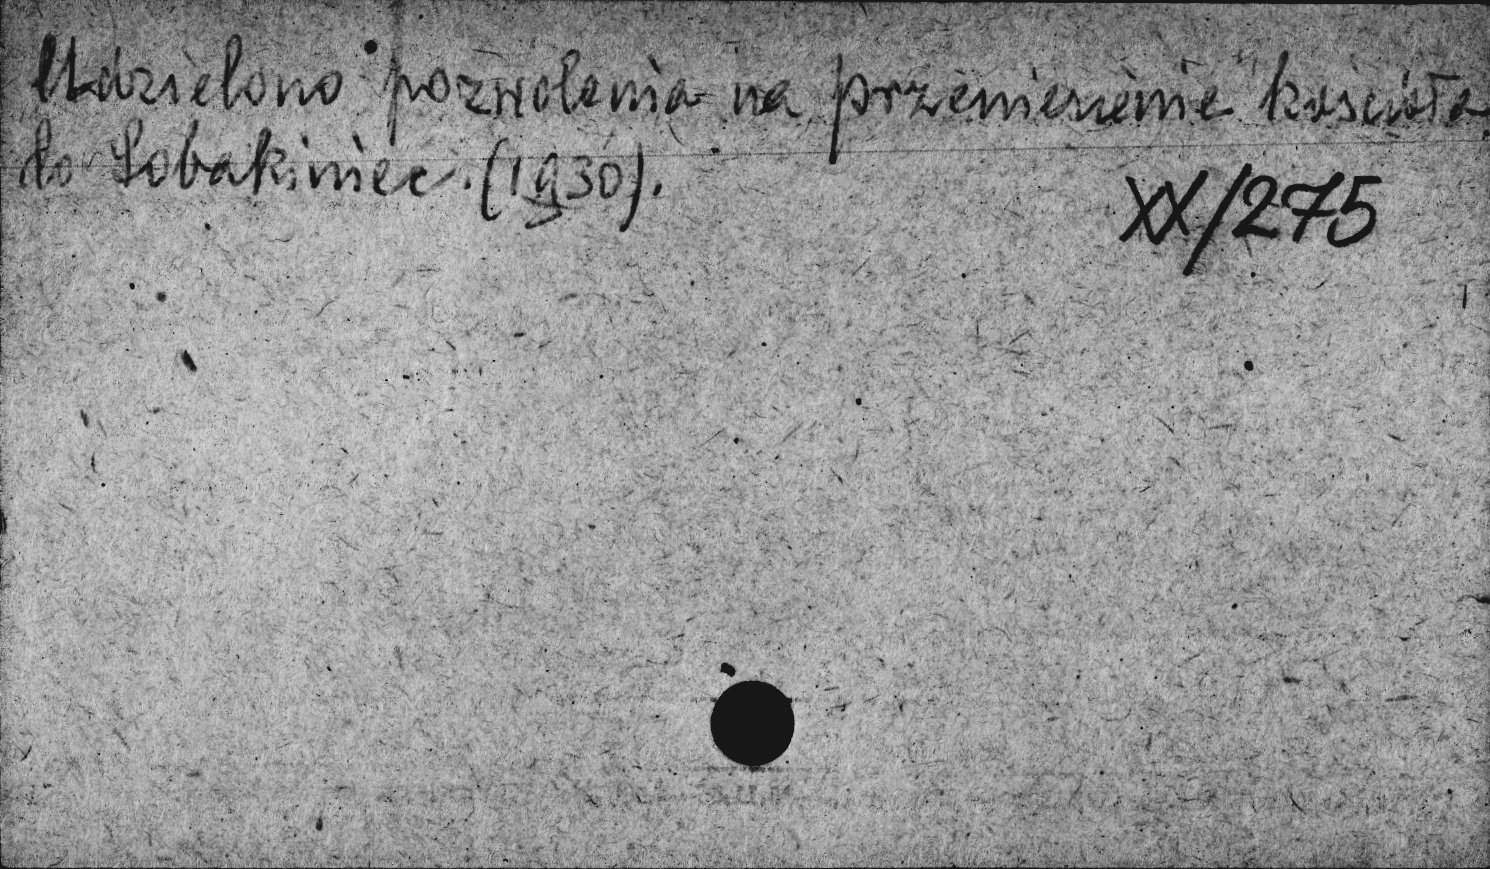 Udzielono pozwolenia na przeniesienie kościoła
do Sobakiniec. (1930).
XX/275